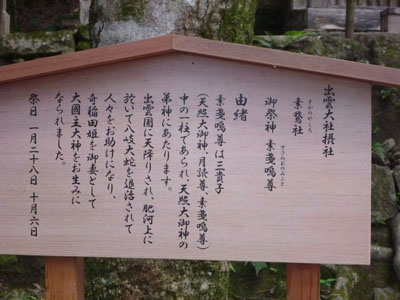 出雲大社摂社
そがのやしろ
素鵞社
御祭神 素戔嗚尊
すさのおのみこと
由緒
素戔嗚尊は三貴子
(天照大御神、月読尊、素戔嗚尊)
中の一柱であられ、天照大御神の
弟神にあたります。
出雲国に天降りされ、肥河上に
於いて八岐大蛇を退治されて
人々をお助けになり、
奇稲田姫を御妻として
大國主大神をお生みに
なられました。
祭日 一月二十八日 十月六日